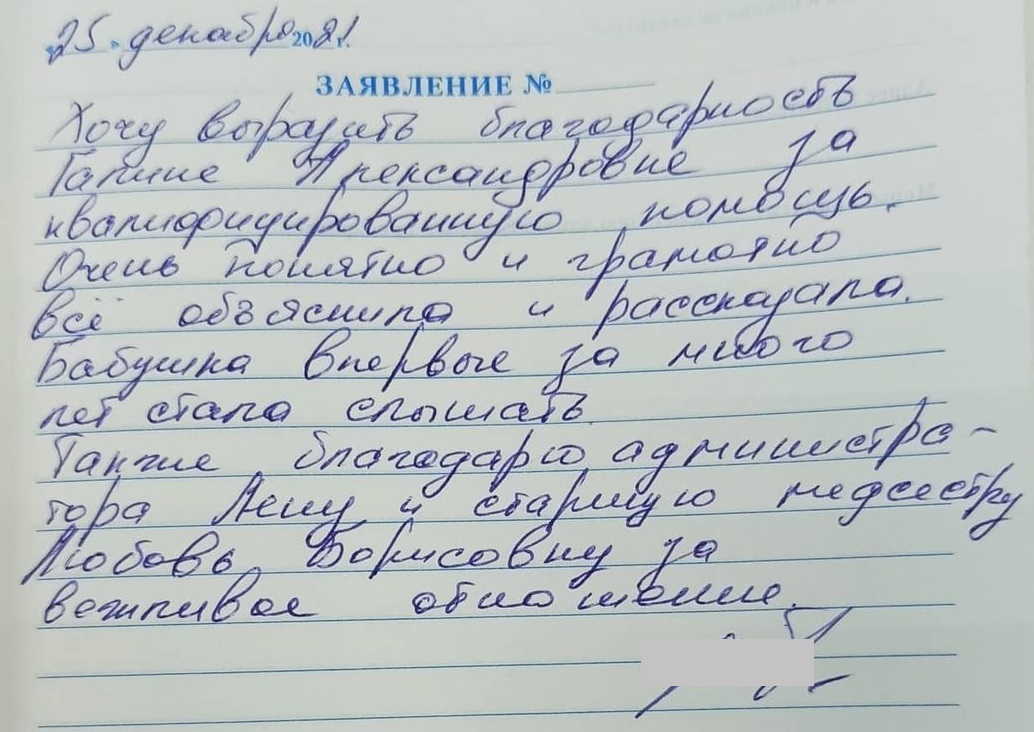 «25» декабря 2021г.
ЗАЯВЛЕНИЕ №
Хочу выразить благодарность
Галине Александровне за
квалифицированную помощь.
Очень понятно и грамотно
всё объяснила и рассказала.
Бабушка впервые за много
лет стала слышать.
Также благодарю администра-
тора Лену и старшую медсестру
Любовь Борисовну за
вежливое отношение.